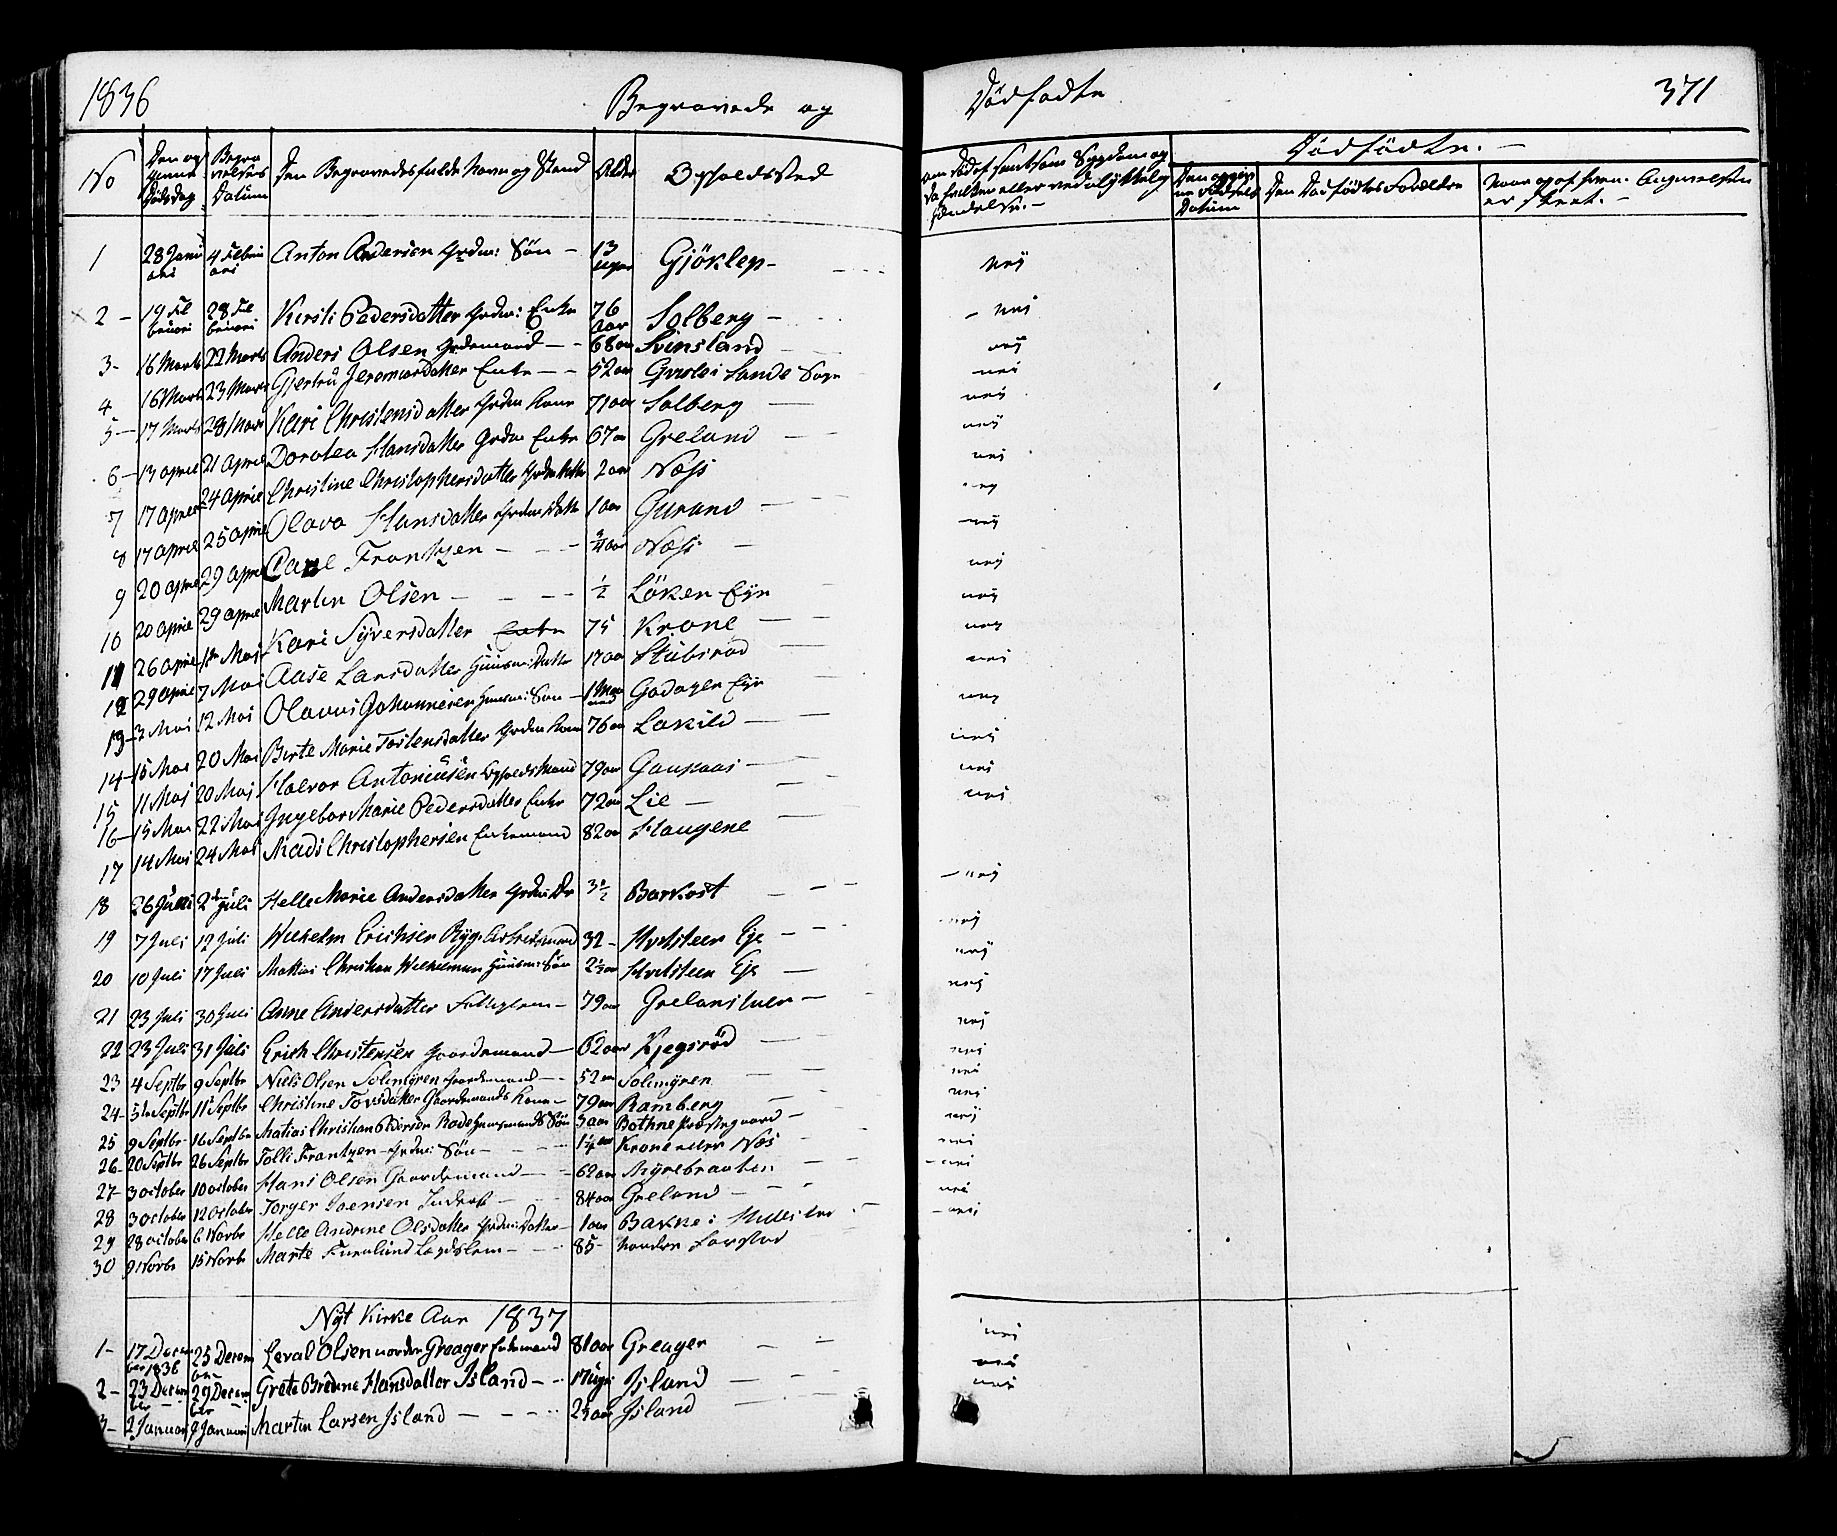 1836 Begravede og Dödfödte 371
No Den op givne Dödsdag Begra velses Datum Den Begravedes fulde Navn og Stand Alder Opholdsted om Död af smitsom Sygdom og da hvilken eller ved ulykkelig hændelse. - Dödfödte. - Den opgiv ne Födsels Datum Den Dödfödtes Forældre Naar og af hvem Angivelsen er skeet. -
1 28 Janu ari 4 Februari Anton Andersen Grdm: Sön - 13 uger Gjöklep - nej
2 - 19 Fe bruari 28 Fe bruari Kirsti Pedersdatter Grdm: Enke 76 aar Solberg - - nej
3 - 16 Marts 22 Marts Anders Olsen Grdemand - - 68 aar Svinsland nej
4 16 Marts 23 Marts Gjertru Jeremiasdatter Enke - - 52 aar i Sande Sogn nej
5 - 17 Marts 28 Mars Kari Christensdatter Grdm: Kone 71 aar Solberg - nej
6 - 13 April 21 April Dorotea Hansdatter Grdm Enke 67 aar Greland - nej
7 17 April 24 April Christine Christophersdatter Grdm: Datter 2 aar Næss nej
8 17 April 25 April Olava Hansdatter Grdm Datt 1 aar Gurand - nej
9 20 April 29 April Carl Frantzen - - - 3/4 aar Næss - nej
10 20 April 29 April Martin Olsen - - - - 1/2 Löken Eje nej
11 26 April 1ste Maj Kari Syversdatter Enke 75 Krone - nej
12 29 April 7 Maj Aase Larsdatter Huusm: Datter 17 aar Stubsröd nej
13 - 3 Mai 12 Maj Olavus Johannesen Huusm: Sön - 1 Maa ned Godager Eje nej
14 - 15 Mai 20 Maj Berte Marie Tostensdatter Grdm Kone 76 aar Lakild - nej
15 11 Maj 20 Maj Halvor Antoniusen Opholds Mand 79 aar Gausaas - nej
16 - 15 Mai 22 Mai Ingebor Marie Pedersdatter Enke 72 aar Lie - nej
17 14 Mai 24 Maj Mads Christophersen Enkemand 82 aar Haugene nej
18 26 Juni 2den Juli Helle Marie Andersdatter Grdm: Dr 3 1/2 Barkost - nej
19 7 Juli 12 Juli Wilhelm Erichsen 32 - Hvitsteen Eje - nej
20 10 Juli 17 Juli Mattias Christian Wilhelmsen Huusm: Sön 2 1/2 aar Hvitsteen Eje - nej
21 23 Juli 30 Juli Anne Andersdatter Fattiglem - 79 aar Grelanstuen - nej
22 23 Juli 31 Juli Erich Christensen Gaardemand - 62 aar Kjegsröd - nej
23 4 Septbr 9 Septbr Niels Olsen Solmyren Gaardemand - - 52 aar Solmyren nej
24 - 5te Septbr 11te Septbr Christine Torsdatter Gaardemands Kone - 79 aar Ramberg - nej
25 9 Septbr 16 Septbr Matias Christian Pedersen Röd Huusmands Sön 3 aar Bothne Præstegaard - nej
26 - 20 Septbr 26 Septbr Tolli Frantzen - Grdm: Sön - - 1/4 aar Krone eller Næs - nej
27 - 3 October 10 October Hans Olsen Gaardemand - - 62 aar Myrebraaten - nej
28 3 October 12 October Torger Joensen Inderst - - 84 aar Greland - nej
29 28 october 6 Novbr Helle Andrine Olsdatter Grdm: Datter - 1 aar Bakke i - nej
30 9 Novbr 15 Novbr Marte Furulund Lægdslem - - - 85 - nordre
Nÿt Kirke Aar 1837
1 - 17 Decem ber 1836 25 Decem ber Leval Olsen nordre Greager Enkemand 81 aar Greager - nej
2 - 23 Decem ber 29 Decem ber Grete Hansdatter Island - - 17 uger Island - nej
3 - 2 Januari 9 Januari Martin Larsen Island - - - 2 1/2 aar Island - nej